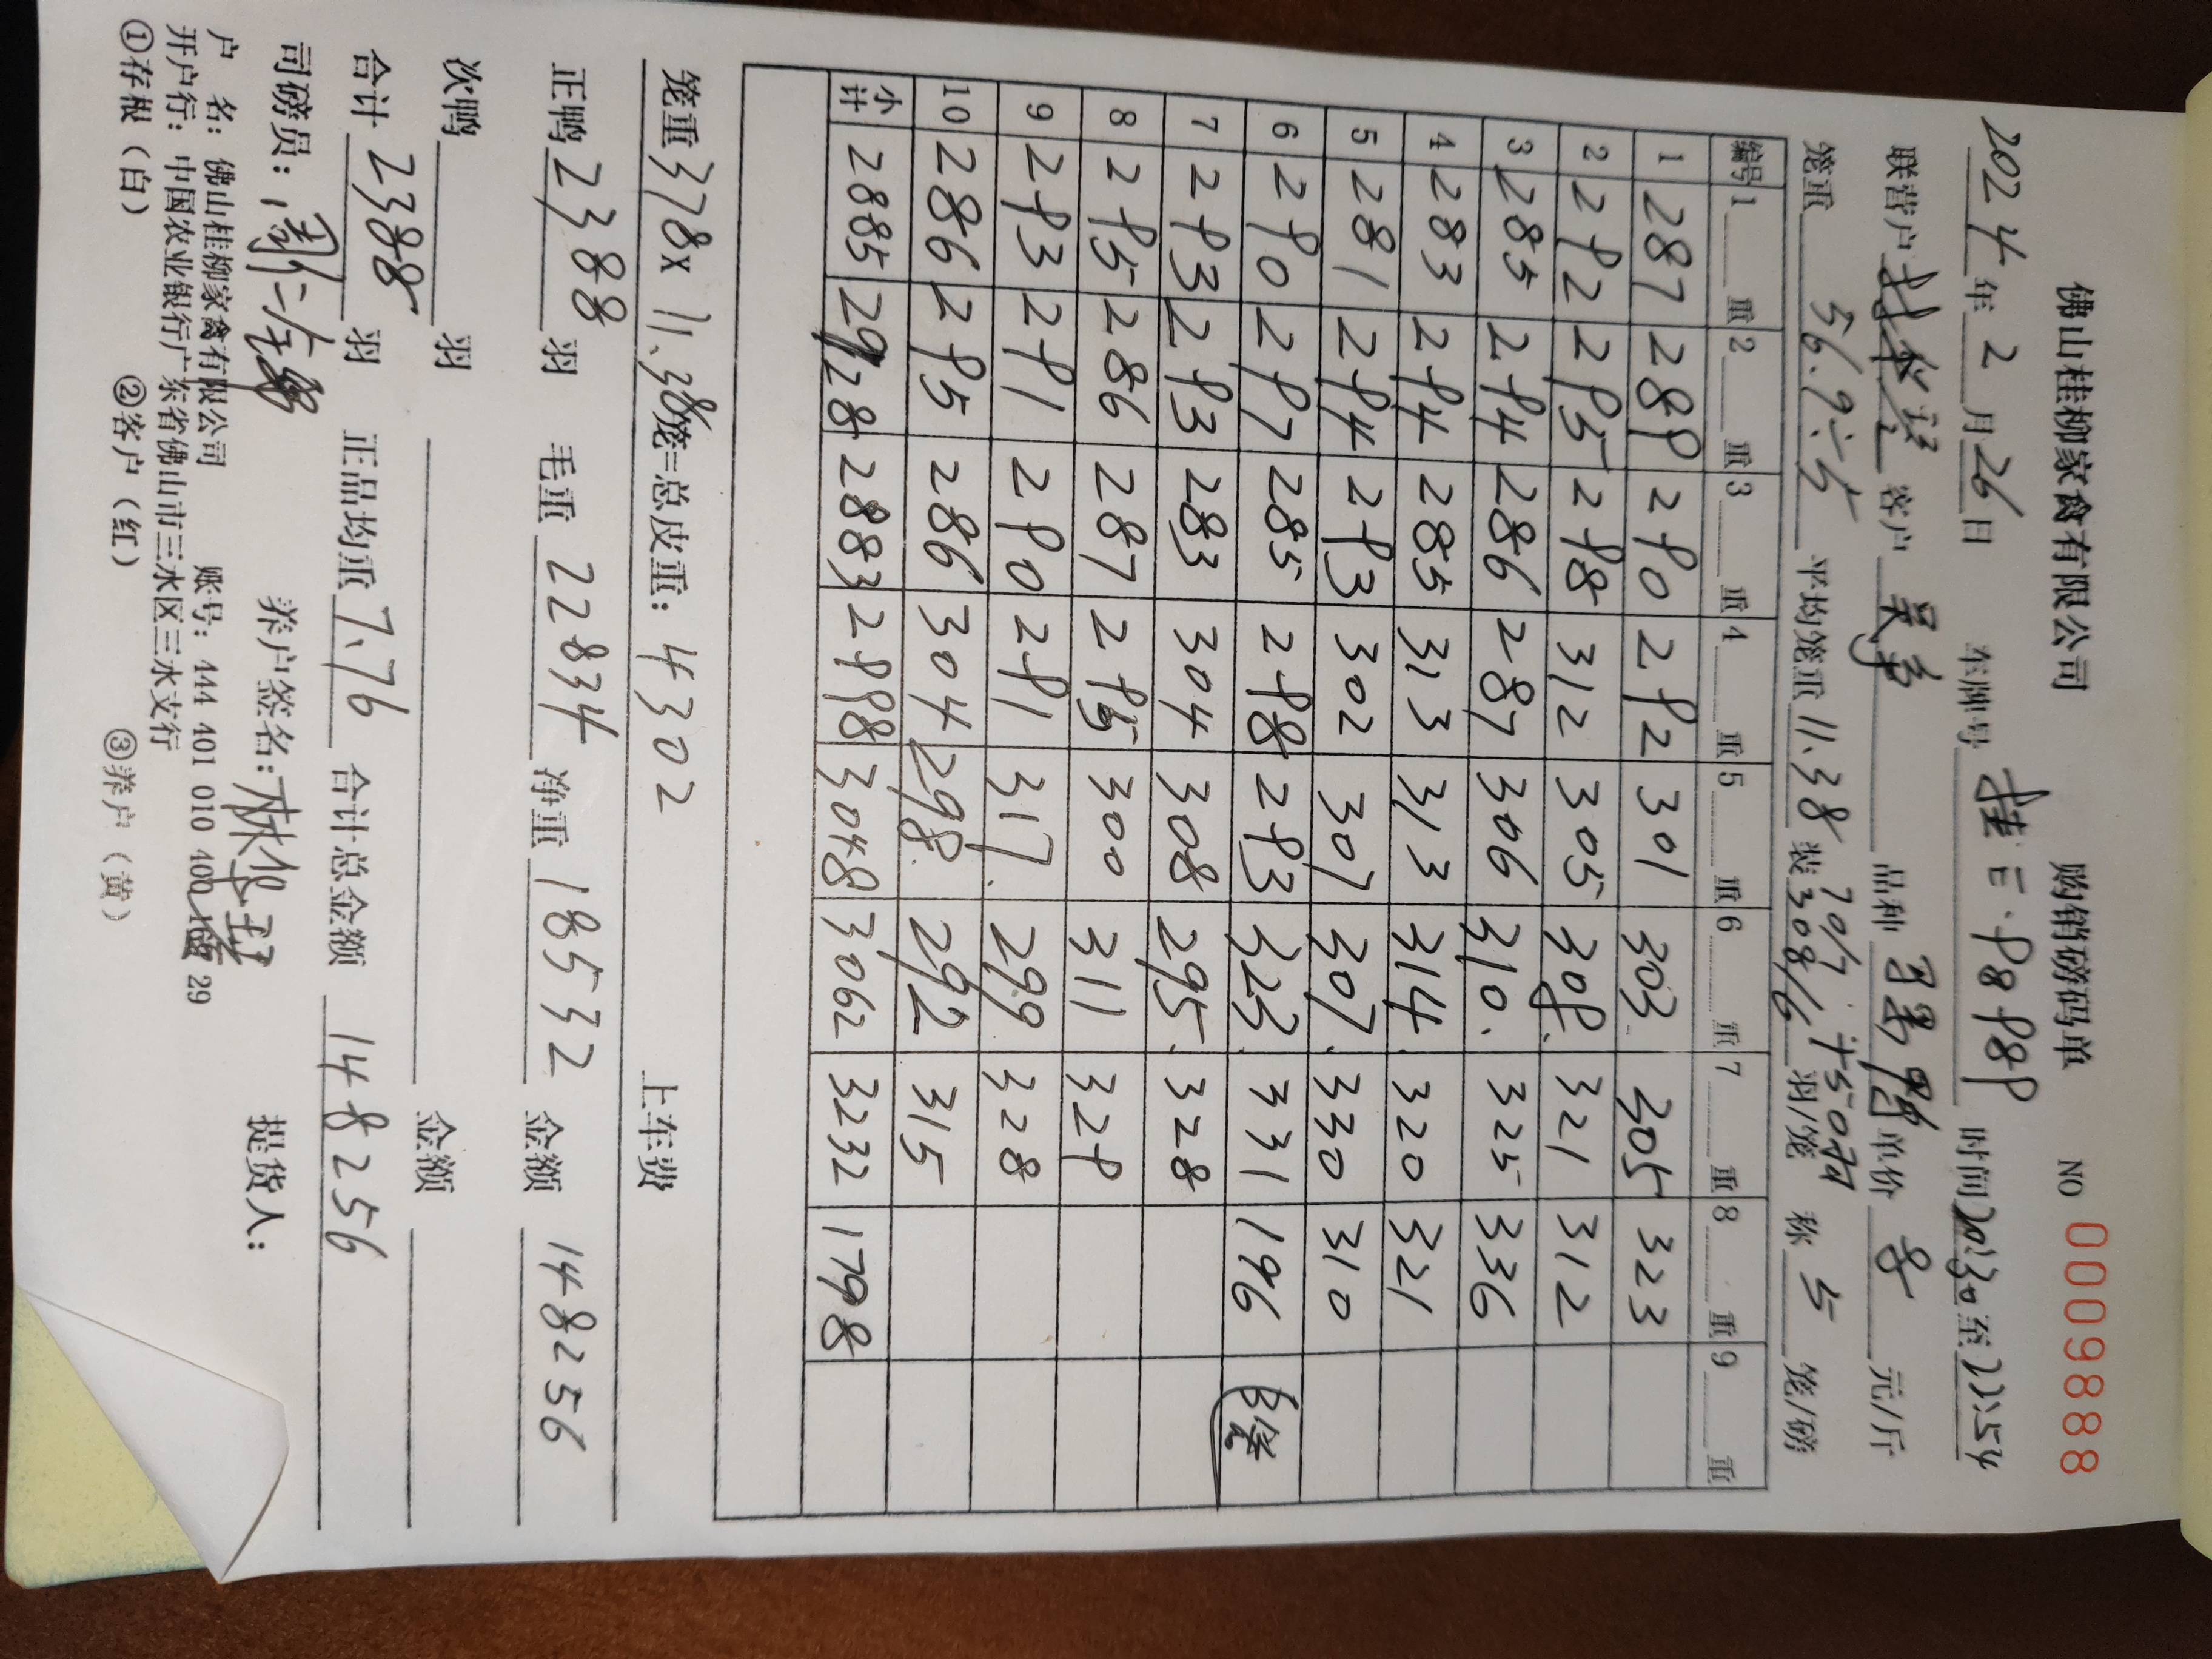 佛山桂柳家禽有限公司 购销磅码单 NO 0009888
2024年2月26日 车牌号 桂E·98989 时间20:30至22:54
联营户 客户 吴 品种 单价 8 元/斤
笼重 56.9÷5 平均笼重11.38 装308/6羽/笼 称 5 笼/磅
70/7
编号 1 重 2 重 3 重 4 重 5 重 6 重 7 重 8 重 9 重
1 287 289 290 292 301 303 305 323
2 292 295 298 312 305 309 321 312
3 285 294 286 287 306 310 325 336
4 283 294 285 313 313 314 320 321
5 281 294 293 302 307 307 330 310
6 290 297 285 298 293 323 331 196 3笼
7 293 293 283 304 308 295 328
8 295 286 287 295 300 311 329
9 293 291 290 291 317 299 328
10 286 295 286 304 298 292 315
小计 2885 2928 2883 2998 3048 3062 3232 1798
笼重378x11.38笼=总皮重：4302 上车费
正鸭2388羽 毛重22834净重18532金额148256
次鸭 羽 金额
合计2388羽 正品均重7.76合计总金额148256
司磅员： 养户签名：林 提货人：
户 名：佛山桂柳家禽有限公司 账号：444 401 010 400 168 29
开户行：中国农业银行广东省佛山市三水区三水支行
①存根（白） ②客户（红） ③养户（黄）